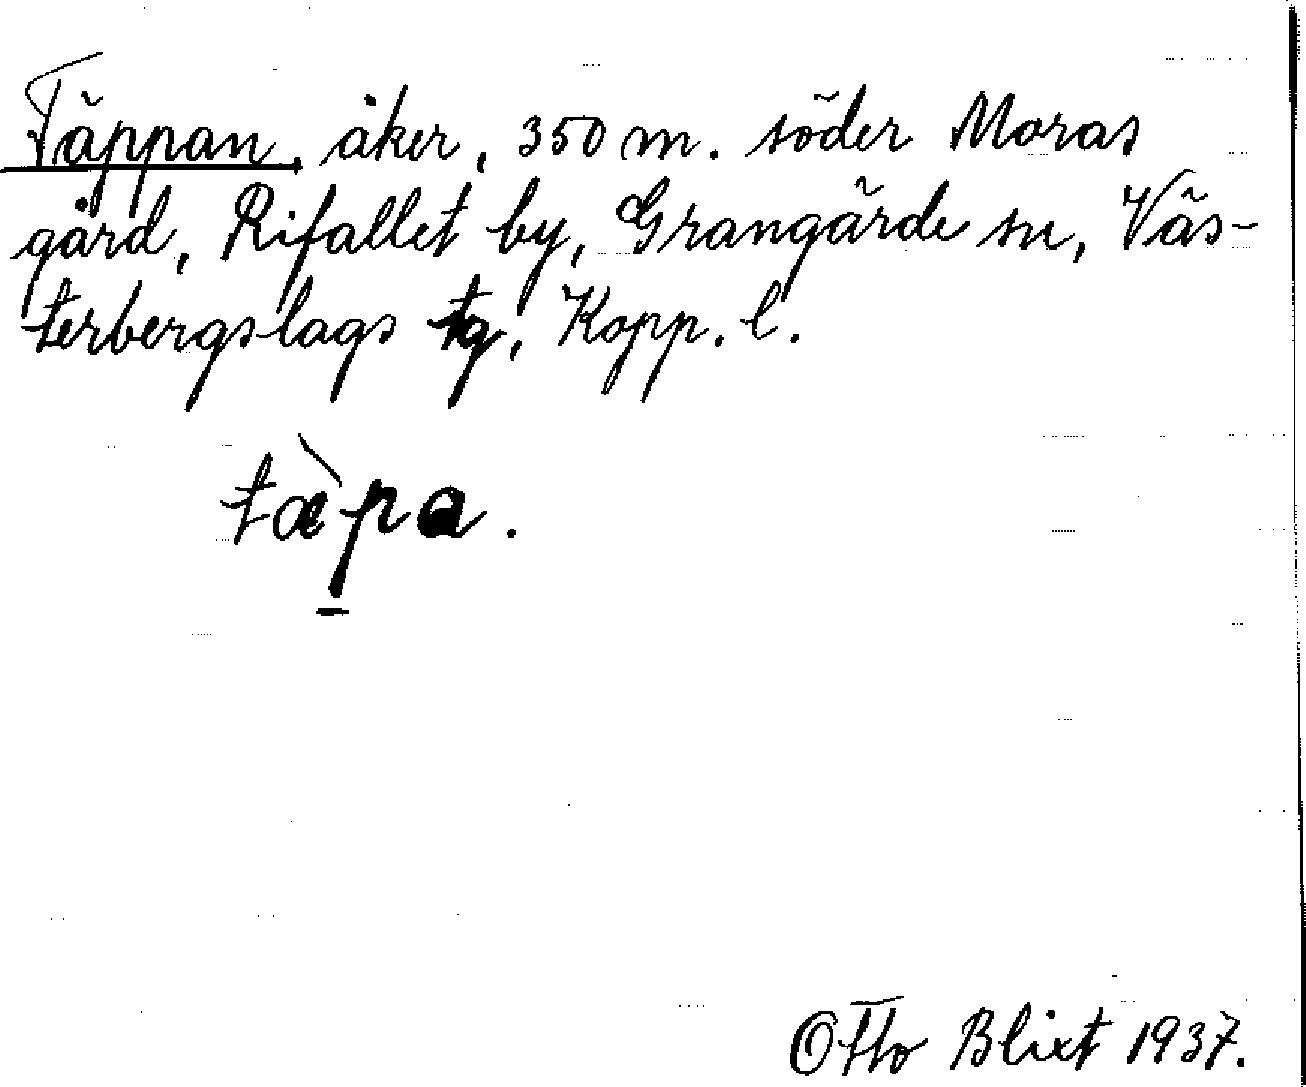 Täppan, åker, 350 m. söder Moras
gård, Rifallet by, Grangärde sn, Väs-
terbergslags tg, Kopp. l.
tæ̀p̱a.
Otto Blixt 1937.